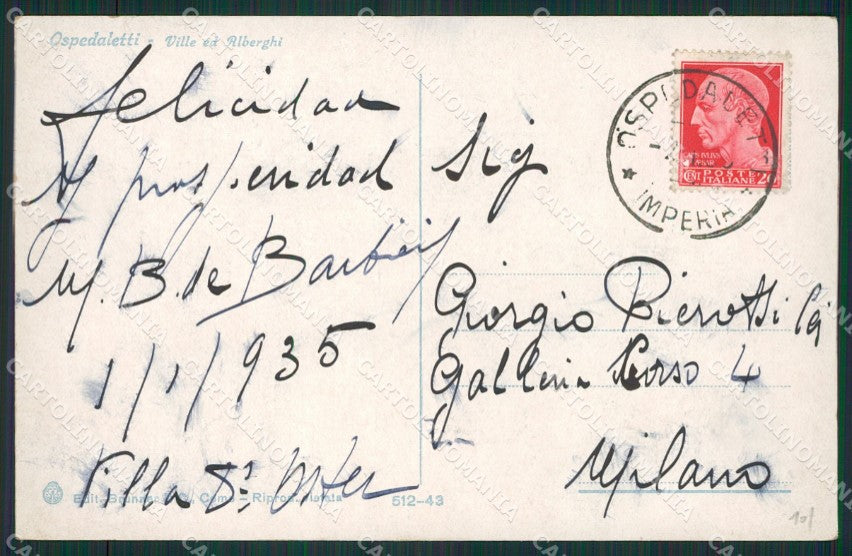 Ospedaletti - Ville ed Alberghi
felicidad
y prosperidad
M. B. de Barbieri
1/1/935
Villa
Edit. Brunner & C., Como - Riprod. vietata
512-43
OSPEDALETTI
IMPERIA
CAIVS IVLIVS
CAESAR
CENT POSTE ITALIANE 20
Sig
Giorgio Pierotti
Galleria Corso 4
Milano
10/
CARTOLINOMANIA